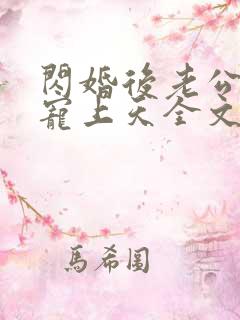 閃婚後老公
寵上天全文
馬希圖